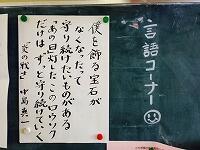 言語コーナー
僕を飾る宝石が
なくなったって
守り続けたいものがある
あの日灯した このロウソク
だけは、ずっと守り続けていく